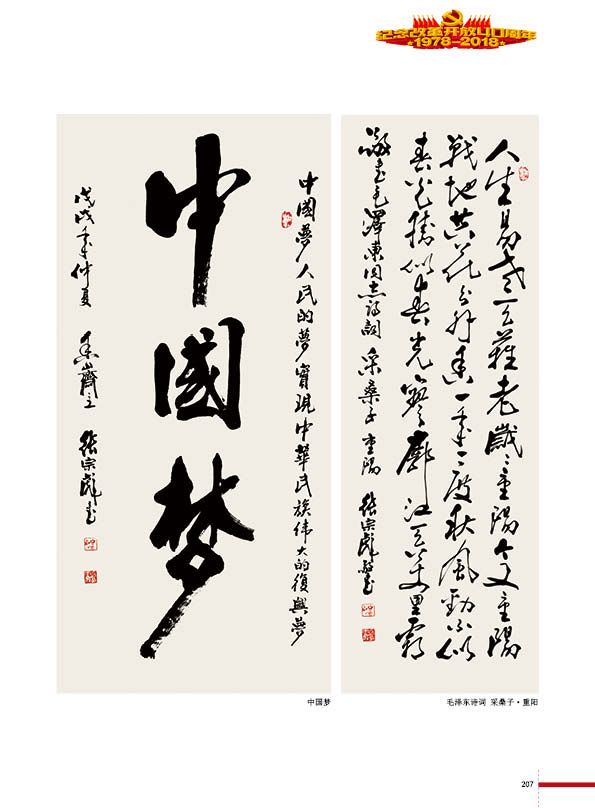 纪念改革开放40周年
1978-2018
人生易老天難老歲〻重陽今又重陽
戰地黃花分外香一年一度秋風勁不似
春光勝似春光寥廓江天萬里霜
毛澤東同志詩詞 采桑子 重陽 張宗彪
中國夢人民的夢實現中華民族偉大的復興夢
中國梦
戊戌年仲夏 張宗彪书
中国梦
毛泽东诗词 采桑子·重阳
207